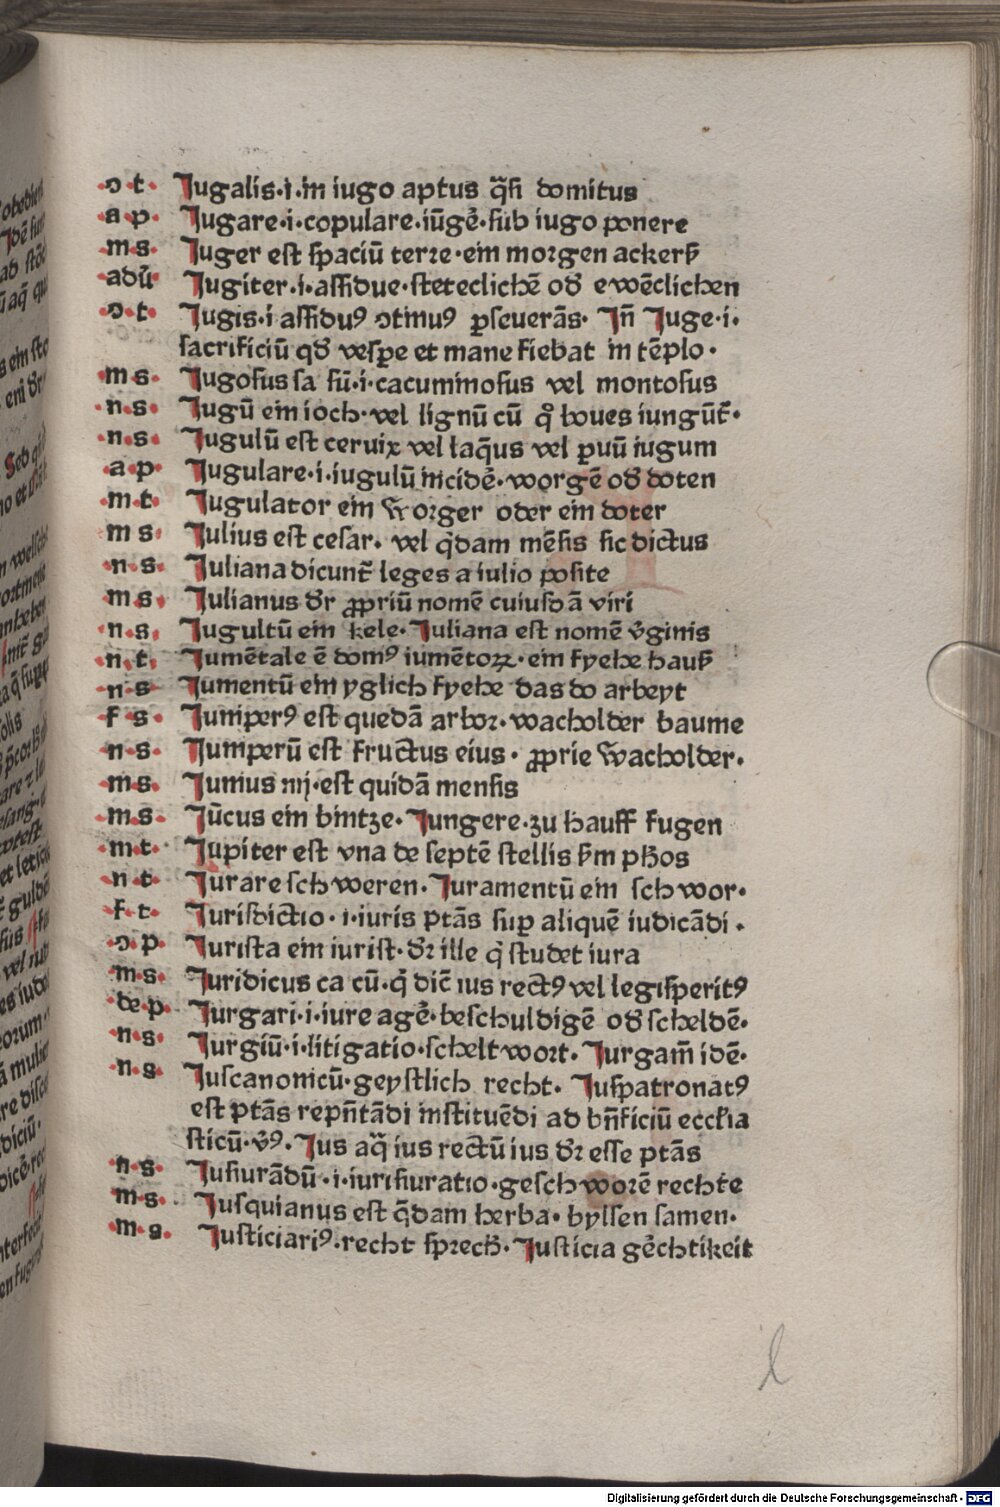 ·ɔ·t· Jugalis·i·in iugo aptus q̃ſi domitus
·a·p· Jugare·i·copulare·iũgẽ·ſub iugo ponere
·m·s· Juger est ſpaciũ terre·ein morgen ackerß
·adũ· Jugiter·i·aſſidue·ſteteclichẽ od̃ ewẽclichen
·ɔ·t· Jugis·i aſſiduꝰ ɔtinuꝰ ꝑſeuerãs· Jñ Juge·i·
ſacrificiũ qd̃ veſꝑe et mane fiebat in tẽplo·
·m·s· Jugoſus ſa ſũ·i·cacuminoſus vel montoſus
·n·s· Jugũ ein ioch·vel lignũ cũ q̊ boues iungũt̃·
·n·s· Jugulũ eſt ceruix vel laq̃us vel ꝑuũ iugum
·a·p· Jugulare·i·iugulũ incidẽ·worgẽ od̃ doten
·m·t· Jugulator ein worger oder ein doter
·m·s· Julius eſt ceſar· vel q̃dam mẽſis ſic dictus
·n·s· Juliana dicunt̃ leges a iulio poſite
·m·s· Julianus dr̃ ꝓpriũ nomẽ cuiuſdã viri
·n·s· Jugultũ ein kele·Juliana eſt nomẽ ṽginis
·n·t· Jumẽtale ẽ domꝰ iumẽtoꝝ·ein fyehe hauß
·n·s· Jumentũ ein yglich fyehe das do arbeyt
·f·s· Juniperꝰ eſt quedã arbor·wacholder baume
·n·s· Juniperũ eſt fructus eius· ꝓprie wacholder·
·m·s· Junius nij·eſt quidã menſis
·m·s· Jũcus ein bintze·Jungere·zu hauff fugen
·m·t· Jupiter eſt vna de ſeptẽ ſtellis ẜm ph̃os
·n·t· Jurare ſchweren·Juramentũ ein ſchwor·
·f·t· Juriſdictio·i·iuris ptãs ſuꝑ aliquẽ iudicãdi·
·ɔ·p· Juriſta ein iuriſt·dr̃ ille q̇ ſtudet iura
·m·s· Juridicus ca cũ·q̇ dic̃ ius rectꝰ vel legiſperitꝰ
·de·p· Jurgari·i·iure agẽ·beſchuldigẽ od̃ ſcheldẽ·
·n·s· Jurgiũ·i·litigatio·ſcheltwort·Jurgam̃ idẽ·
·n·s· Juſcanonicũ·geyſtlich recht·Juſpatronatꝰ
eſt ptãs repñtãdi inſtituẽdi ad bñficiũ eccłia
ſticũ·ṽꝰ·Jus aq̃ ius rectũ ius dr̃ eſſe ptãs
·n·s· Juſiurãdũ·i·iuriſiuratio·geſchworẽ rechte
·m·s· Juſquianus eſt q̃dam herba·bylſen ſamen·
·m·s· Juſticiariꝰ·recht ſprech̃·Juſticia gẽchtikeit
l
Digitalisierung gefördert durch die Deutsche Forschungsgemeinschaft · DFG